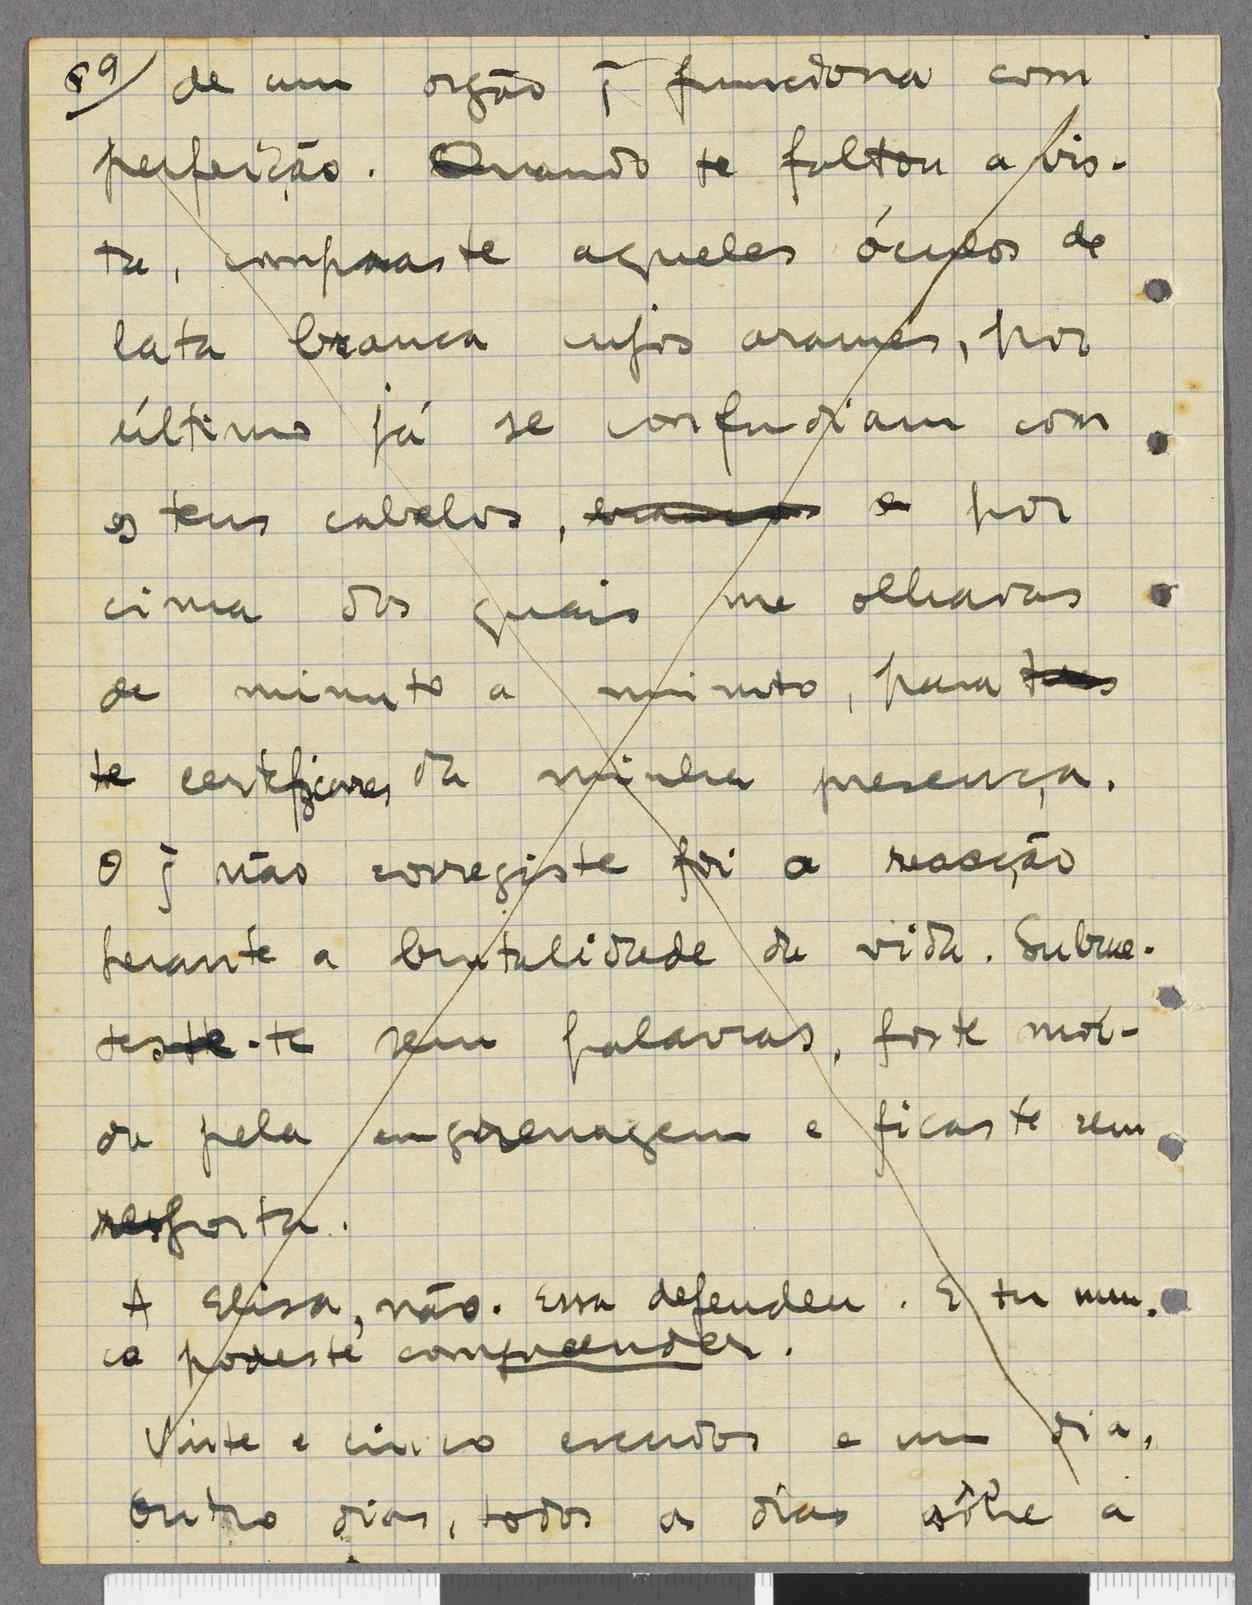 89/ de um orgão q̃ funciona com
perfeição. Quando te faltou a vis-
ta, compraste aqueles óculos de
lata branca cujos arames, por
último já se confundiam com
os teus cabelos, brancos e por
cima dos quais me olhavas
de minuto a minuto, para
te certeficares da minha presença.
O q̃ não corregiste foi a reacção
perante a brutalidade da vida. Subme-
teste-te sem palavras, foste moí-
da pela engrenagem e ficaste sem
resposta.
A Elisa, não. Essa defendeu. E tu nun-
ca podeste compreender.
Vinte e cinco escudos e um dia,
Outro dias, todos os dias sôbre a